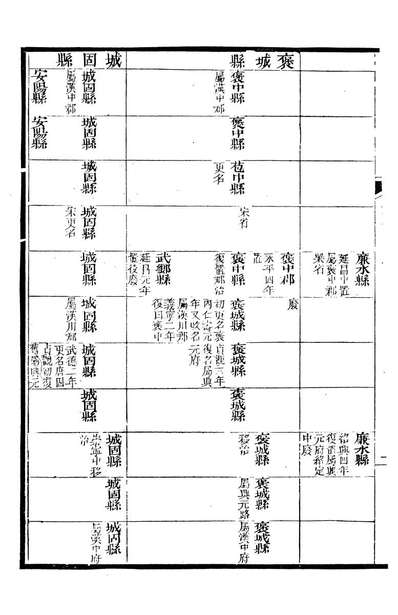 褒城縣
城固縣
褒中縣
屬漢中郡
城固縣
屬漢中郡
安陽縣
褒中縣
城固縣
安陽縣
苞中縣
更名
城固縣
宋省
城固縣
宋更名
廉水縣
延昌中置
屬褒中郡
梁省
褒中郡
永平四年
置
褒中縣
復置郡治
武鄉縣
延昌元年
置後廢
城固縣
廢
褒城縣
初更名褒
內仁壽元
年又改名
屬漢川郡
義寧二年
復曰褒中
城固縣
屬漢川郡
褒城縣
貞觀三年
復名屬興
元府
城固縣
武德二年
更名唐固
貞觀初復
舊屬興元
褒城縣
城固縣
廉水縣
紹興四年
復置屬興
元府紹定
中廢
褒城縣
移治
城固縣
崇寧中移
治
褒城縣
屬興元路
城固縣
褒城縣
屬漢中府
城固縣
屬漢中府
二